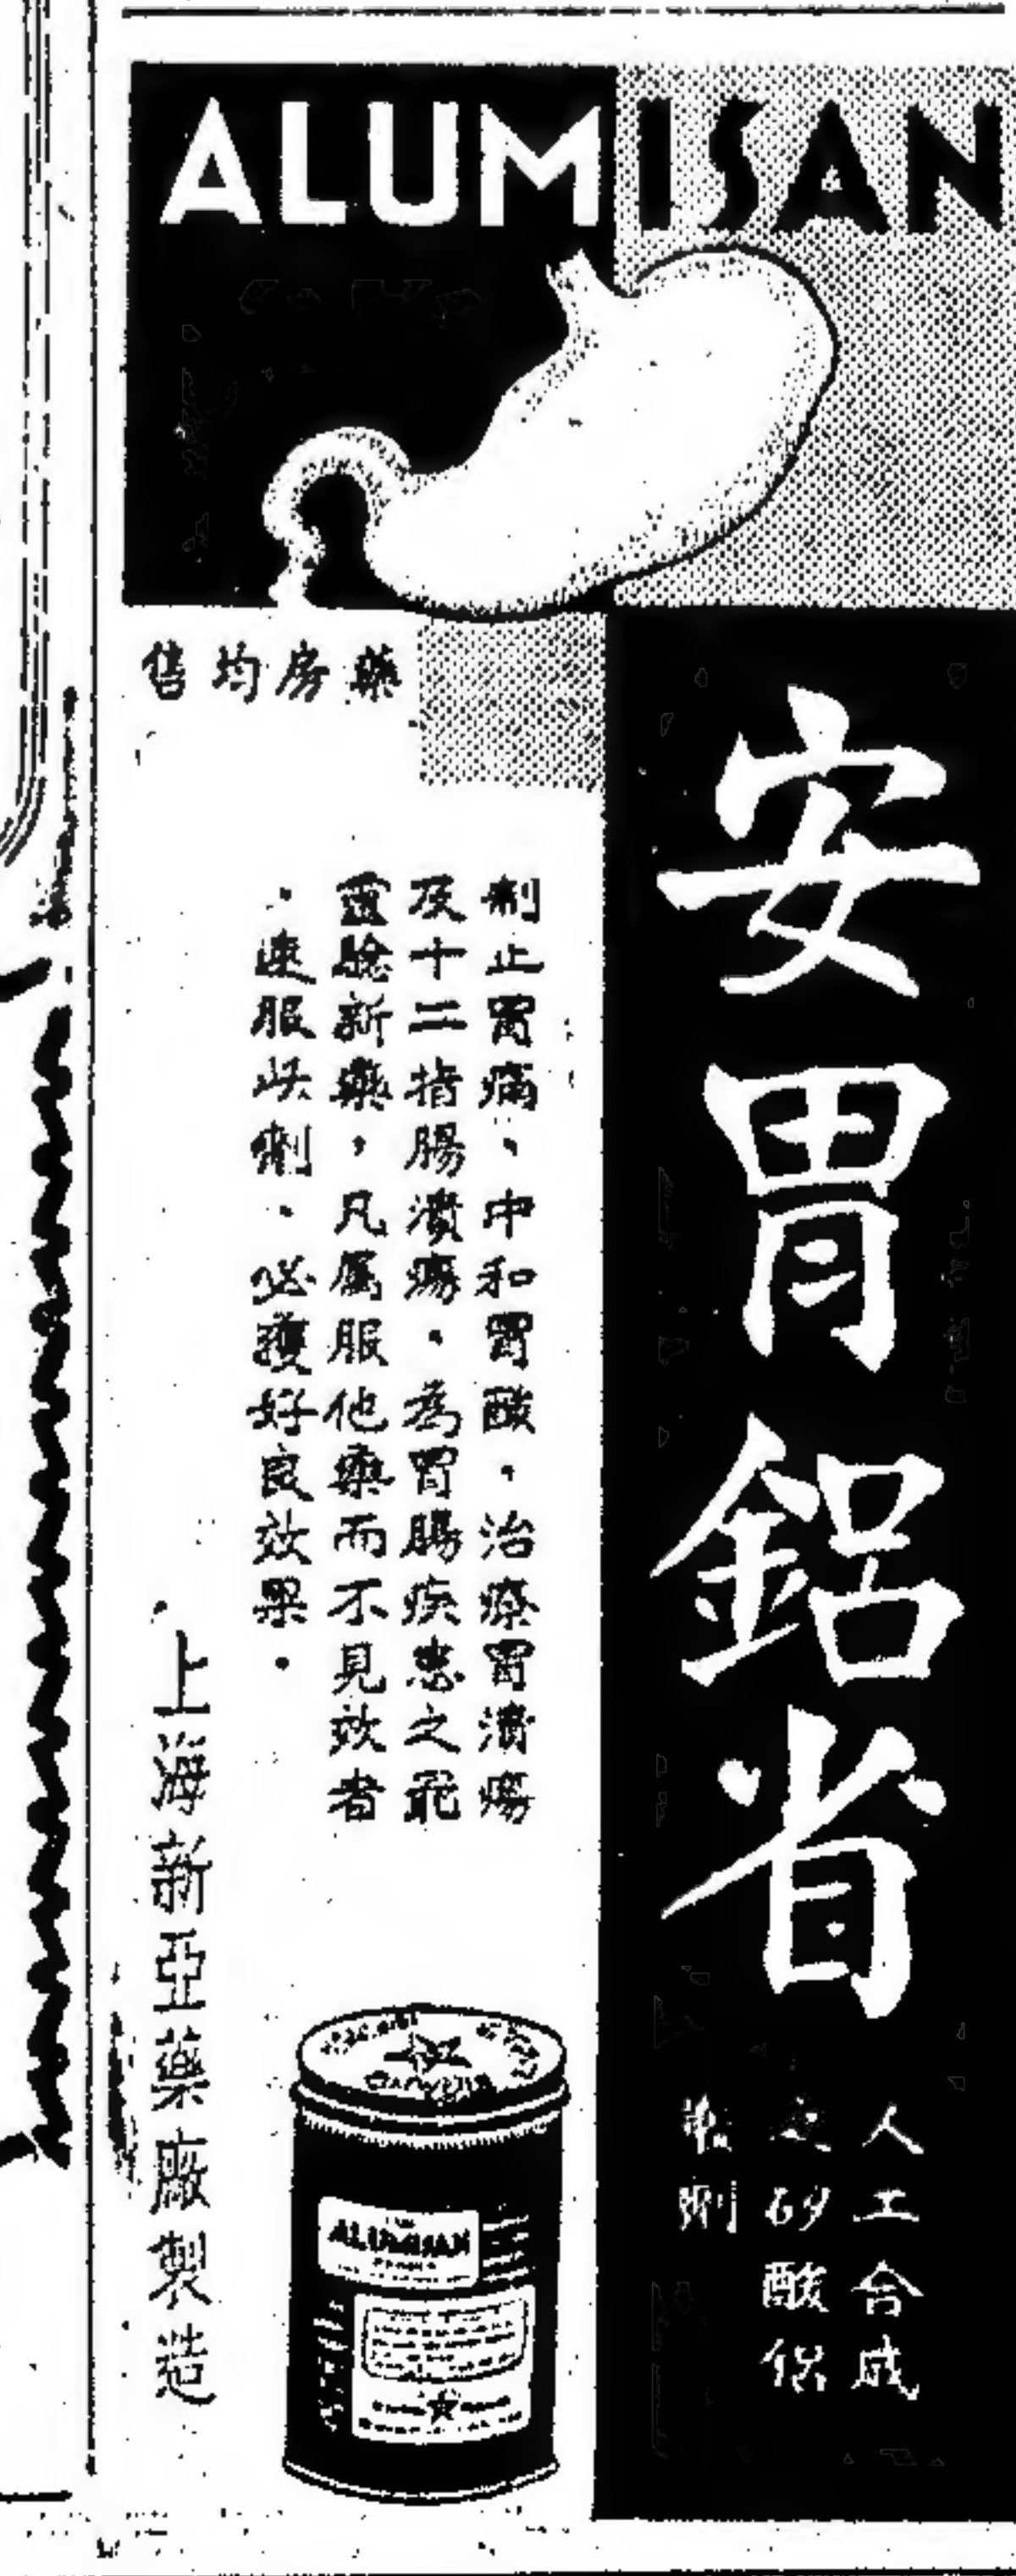 ALUMISAN
安胃鋁省
人工合成
之矽酸鋁
製劑
藥房均售
制止胃痛、中和胃酸、治療胃潰瘍
及十二指腸潰瘍、為胃腸疾患之
靈驗新藥，凡屬服他藥而不見效者
、速服此劑、必獲好良效果。
上海新亞藥廠製造
ALUMISAN